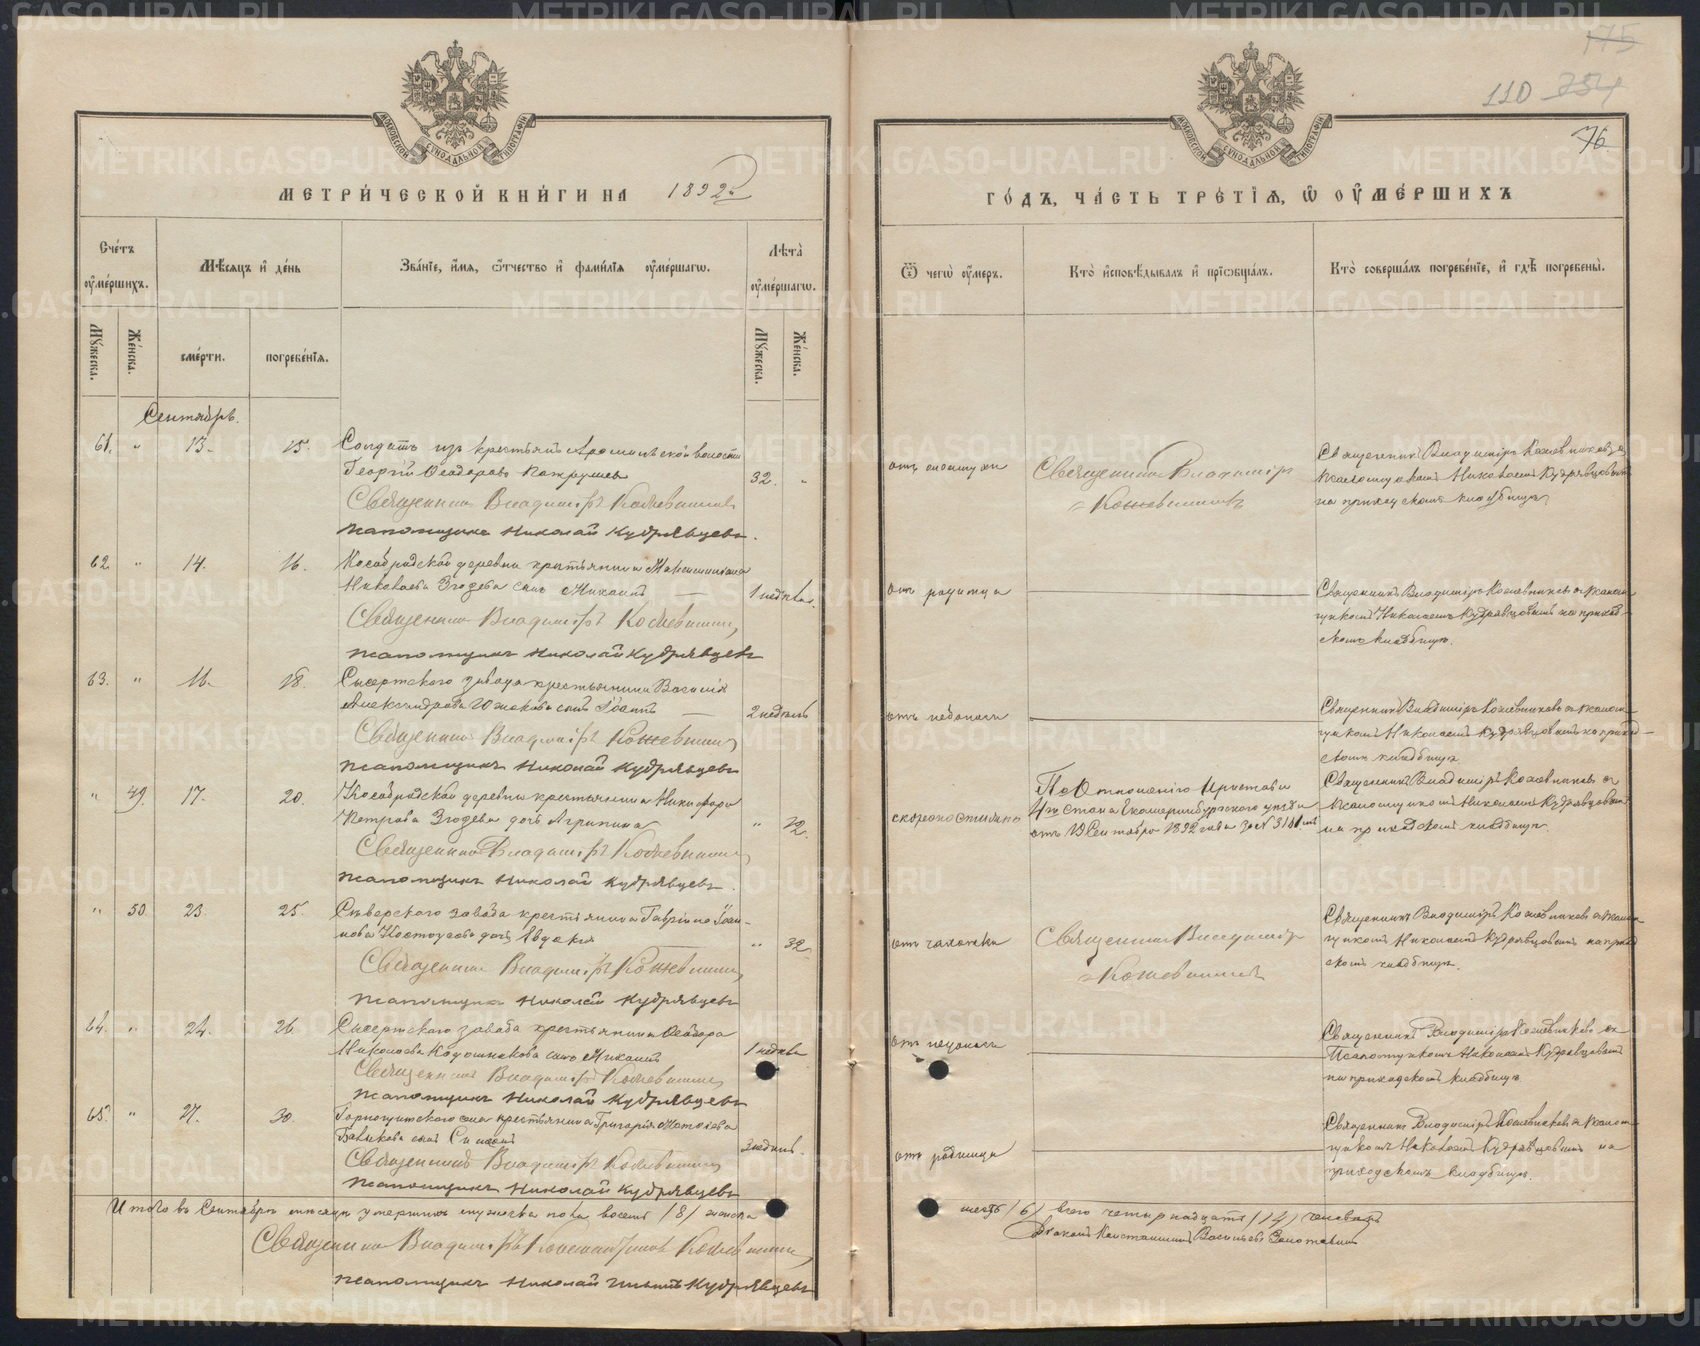 МЕТРИ́ЧЕСКОЙ КНИ́ГИ НА 1892 г.
Сче́тъ оу҆ме́ршихъ.
Мѣ́сяцъ и҆ де́нь
Зва́нїе, и҆́мя, ѻ҆́тчество и҆ фами́лїя оу҆ме́ршагѡ.
Лѣ́та оу҆ме́ршагѡ.
Мꙋ́жеска.
Же́нска.
сме́рти.
погребе́нїя.
Мꙋ́жеска.
Же́нска.
Сентябрь.
61. " 13. 15. Солдатъ изъ крестьянъ Арамильской волости
Георгій Ѳеодоровъ 32. "
Священникъ Владиміръ Кожевниковъ
Псаломщикъ Николай Кудрявцевъ.
62. " 14. 16. Кособродской деревни крестьянина Максимиліана
Николаева Згодева сынъ Михаилъ 1 недѣля.
Священникъ Владиміръ Кожевниковъ
Псаломщикъ Николай Кудрявцевъ
63. " 16. 18. Сысертского завода крестьянина Василія
Александрова сынъ Іоаннъ 2 недѣль
Священникъ Владиміръ Кожевниковъ
Псаломщикъ Николай Кудрявцевъ
" 49. 17. 20. Кособродской деревни крестьянина Никифора
Петрова Згодева дочь Агрипина " 12.
Священникъ Владиміръ Кожевниковъ
Псаломщикъ Николай Кудрявцевъ.
" 50. 23. 25. Сѣверского завода крестьянина Гавріила Іоан-
нова дочь Авдокія " 32.
Священникъ Владиміръ Кожевниковъ
Псаломщикъ Николай Кудрявцевъ
64. " 24. 26. Сысертского завода крестьянина Ѳеодора
Николаева сынъ Михаилъ 1 недѣля
Священникъ Владиміръ Кожевниковъ
Псаломщикъ Николай Кудрявцевъ
65. " 27. 30. Горнощитского села крестьянина Григорія
сынъ Симеонъ 3 недѣль.
Священникъ Владиміръ Кожевниковъ
Псаломщикъ Николай Кудрявцевъ
Итого въ Сентябрѣ мѣсяцѣ умершихъ мужеска пола восемь /8/ женска
Священникъ Владиміръ Кожевниковъ
Псаломщикъ Николай Кудрявцевъ
110
76
ГО́ДЪ, ЧА́СТЬ ТРЕ́ТЇЯ, Ѡ҆ ОУ҆МЕ́РШИХЪ
Ѿ чегѡ̀ оу҆́меръ.
Кто̀ и҆сповѣ́дывалъ и҆ прїѡбща́лъ.
Кто̀ соверша́лъ погребе́нїе, и҆ гдѣ̀ погребены̀.
Священникъ Владиміръ
Кожевниковъ
Священникъ Владиміръ Кожевниковъ съ
псаломщикомъ Николаемъ Кудрявцевымъ
на приходскомъ кладбищѣ
отъ родимца
Священникъ Владиміръ Кожевниковъ съ псалом-
щикомъ Николаемъ Кудрявцевымъ на приход-
скомъ кладбищѣ.
Священникъ Владиміръ Кожевниковъ съ псалом-
щикомъ Николаемъ Кудрявцевымъ на приход-
скомъ кладбищѣ
скоропостижно
По Отношенію Пристава
4го Стана Екатеринбургского уѣзда
отъ 19 Сентября 1892 года за №
Священникъ Владиміръ Кожевниковъ съ
псаломщикомъ Николаемъ Кудрявцевымъ
на приходскомъ кладбищѣ.
отъ чахотки
Священникъ Владиміръ
Кожевниковъ
Священникъ Владиміръ Кожевниковъ съ псалом-
щикомъ Николаемъ Кудрявцевымъ на приход-
скомъ кладбищѣ.
Священникъ Владиміръ Кожевниковъ съ
псаломщикомъ Николаемъ Кудрявцевымъ
на приходскомъ кладбищѣ
отъ родимца
Священникъ Владиміръ Кожевниковъ съ псалом-
щикомъ Николаемъ Кудрявцевымъ на
приходскомъ кладбищѣ.
шесть /6/ всего четырнадцать /14/ человѣкъ
Діаконъ Константинъ Васильевъ Золотавинъ
METRIKI.GASO-URAL.RU